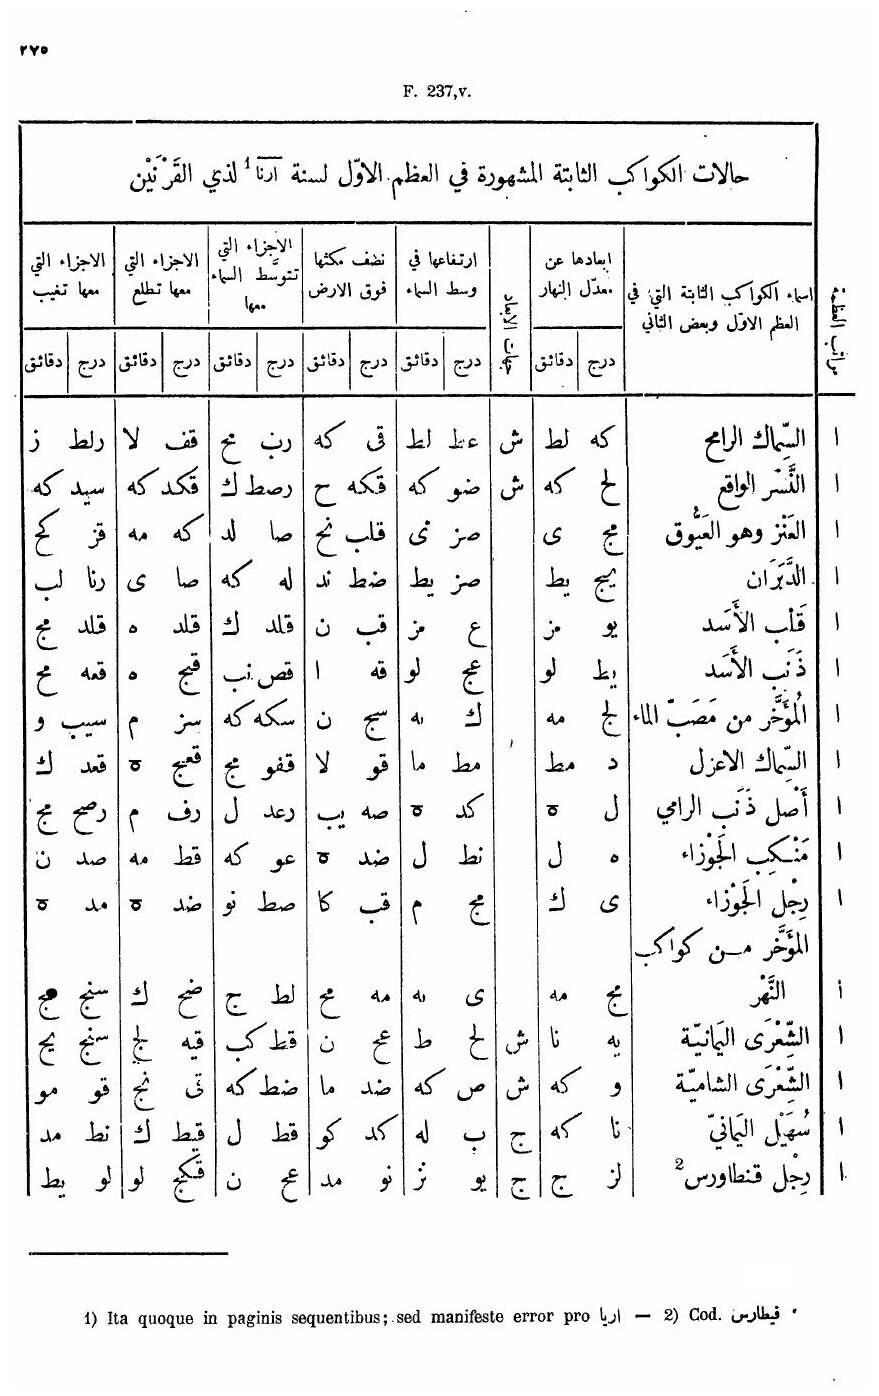 ٢٧٥
F. 237,v.
حالات الكواكب الثابتة المشهورة في العظم الاوّل لسنة ارنا¹ لذي القَرْنَيْن
مراتب العظمة
اسماء الكواكب الثابتة التي في العظم الاوّل وبعض الثاني
ابعادها عن معدّل النهار
جهات الابعاد
ارتفاعها في وسط السماء
نصف مكثها فوق الارض
الاجزاء التي تتوسّط السماء معها
الاجزاء التي معها تطلع
الاجزاء التي معها تغيب
درج دقائق درج دقائق درج دقائق درج دقائق درج دقائق درج دقائق
ا السِّماك الرامح كه لط ش عط لط قى كه رن مح قف لا رلط ز
ا النَّسْر الواقع لح كه ش ضو كه قكه ح رصط ك قكد كه سيد كه
ا العَنْز وهو العَيُّوق مج ى صز نى قلب نح صا لد كه مه قز كح
ا الدَّبَران يج يط صز يط ضط ند له كه صا ى رنا لب
ا قَلْب الأَسَد يو مز ع مز قب ن قلد ك قلد ه قلد مج
ا ذَنَب الأَسَد يط لو عج لو قه ا قص نب قيج ه قعه مح
ا المُؤَخَّر من مَصَبّ الماء لج مه ك يه سج ن سكه كه سز م سيب و
ا السِّماك الاعزل د مط مط ما قو لا قفو مج قعج ة قعد ك
ا أَصْل ذَنَب الرامي ل ة كد ة صه يب رعد ل رف م رصح مج
ا مَنْكِب الجَوْزاء ه ل نط ل ضد ة عو كه قط مه صد ن
ا رِجْل الجَوْزاء ى ك مج م قب كا صط نو ضد ة مد ة
المؤَخَّر مـن كواكب
أ النَّهْر مج مه ى يه مه مح لط ج ضح ك سنج مج
ا الشِّعْرَى اليَمانيّة يه نا ش لح ط عح ن قط كب قيه لج سنج يح
ا الشِّعْرَى الشاميّة و كه ش ص كه ضد ما ضط كه قى نج قو مو
ا سُهَيْل اليَمانيّ نا كه ج ب له كد كو قط ل قيط ك نط مد
ا رِجْل قنطاورس² لز ج ج يو نز نو مد عح ن قكج لو لو يط
1) Ita quoque in paginis sequentibus; sed manifeste error pro اريا — 2) Cod. قيطارس